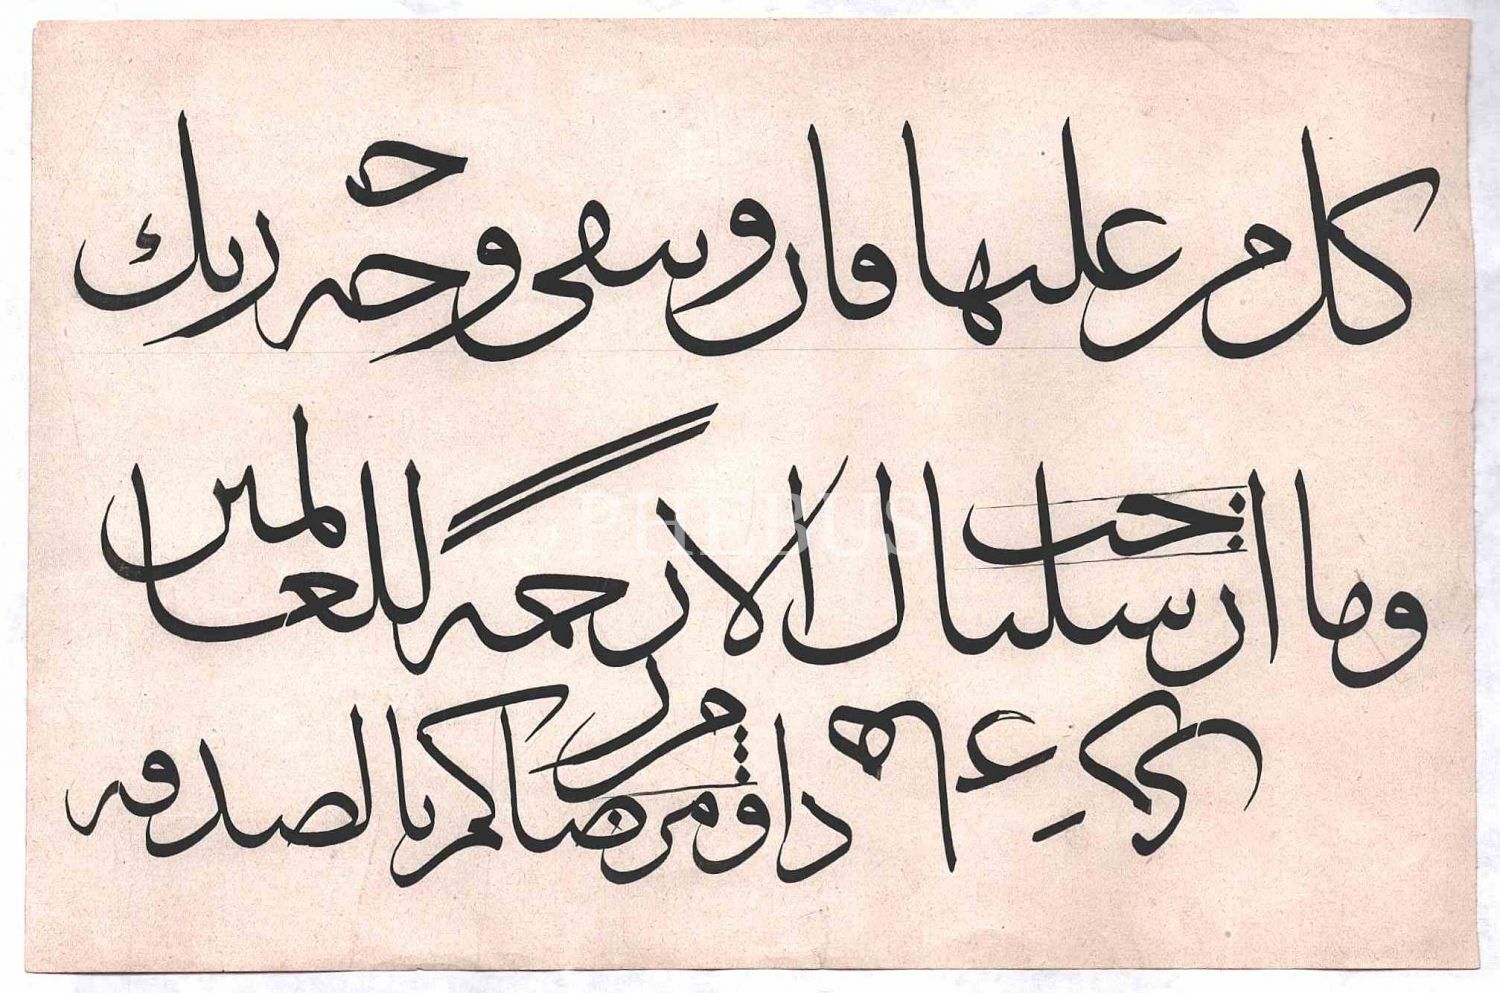 كل من عليها فان ويبقى وجه ربك
ح
وما ارسلناك الا رحمة للعالمين
داووا مرضاكم بالصدقة
PHEBUS